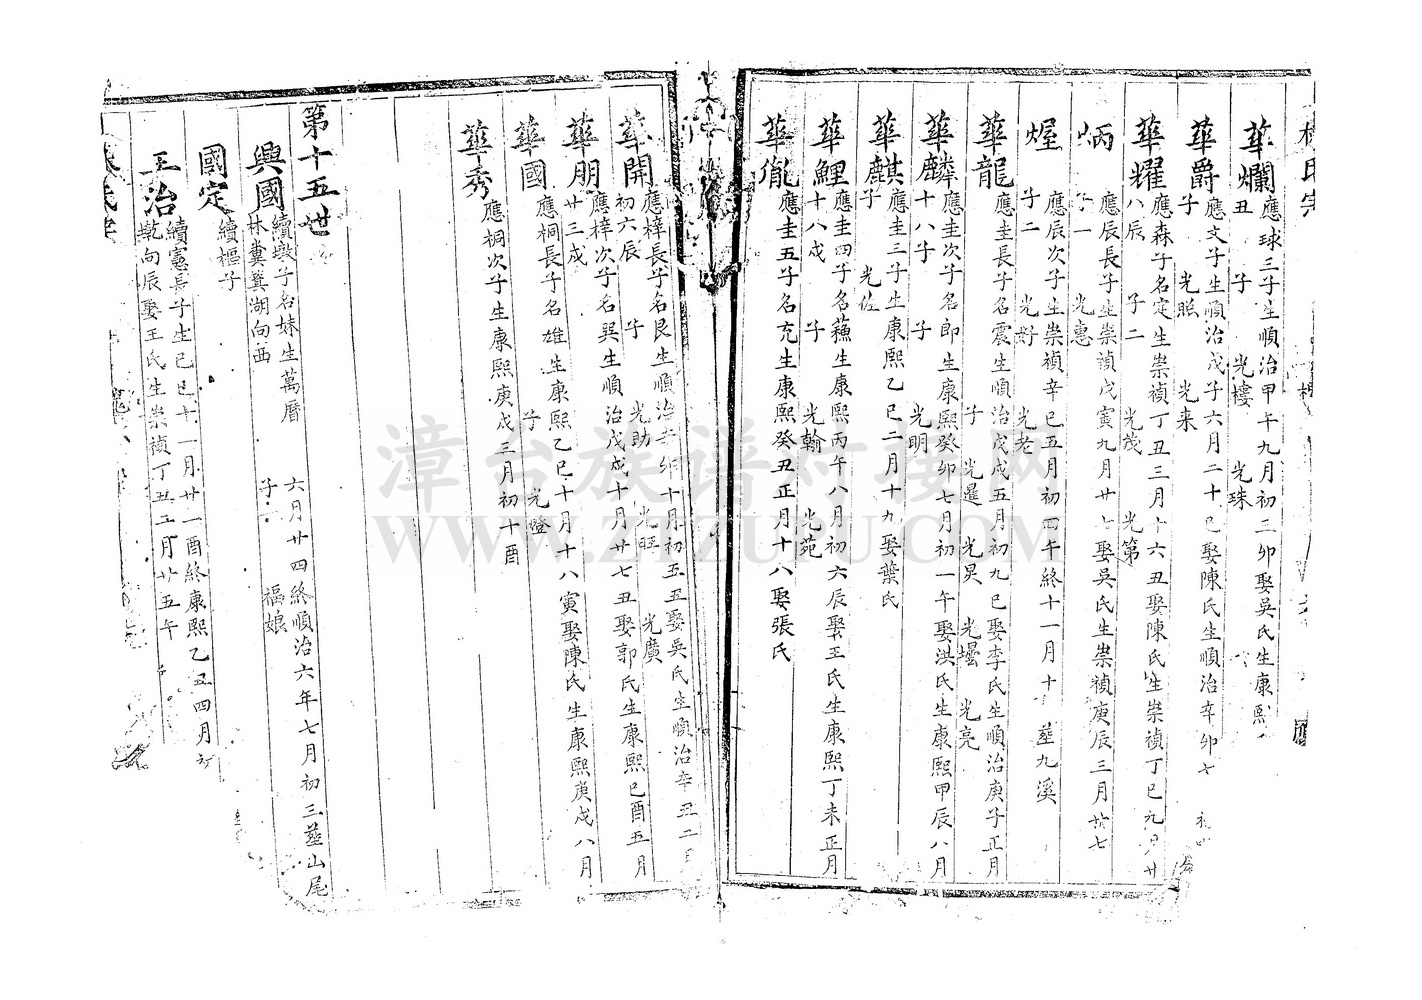 華爛應球三子生順治甲午九月初二卯娶吳氏生康熙
丑 子 光樓 光珠
華爵應文子生順治戊子六月二十巳娶陳氏生順治辛卯七
子 光照 光来
華耀應森子名定生崇禎丁丑三月十六丑娶陳氏生崇禎丁巳九月廿
八辰 子二 光茂 光第
炳應辰長子生崇禎戊寅九月廿七娶吳氏生崇禎庚辰三月廿七
子一 光惠
煋應辰次子生崇禎辛巳五月初四午終十一月十 塟九溪
子二 光 光老
華龍應圭長子名震生順治戊戌五月初九巳娶李氏生順治庚子正月
子 光暹 光炅 光壜 光亮
華麟應圭次子名郎生康熙癸卯七月初一午娶洪氏生康熙甲辰八月
十八子 子 光明
華麒應圭三子生康熙乙巳二月十九娶葉氏
子 光佐
華鯉應圭四子名蘓生康熙丙午八月初六辰娶王氏生康熙丁未正月
十八戌 子 光翰 光苑
華胤應圭五子名充生康熙癸丑正月十八娶張氏
華開應梓長子名艮生順治辛卯十月初五丑娶吳氏生順治辛丑二月
初六辰 子 光助 光旺 光廣
華朋應梓次子名巽生順治戊戌十月廿七丑娶郭氏生康熙己酉五月
廿三戌
華國應桐長子名雄生康熙乙巳十月十八寅娶陳氏生康熙庚戌八月
子 光燈
華秀應桐次子生康熙庚戌三月初十酉
第十五世
興國續墩子名妹生萬曆 六月廿四終順治六年七月初三塟山尾
林糞箕湖向西 子 福娘
國定續樞子
王治續憲長子生己巳十一月廿一酉終康熙乙丑四月初
乾向辰娶王氏生崇禎丁丑二月廿五午 子
漳台族谱对接网
WWW.ZTZUPU.COM